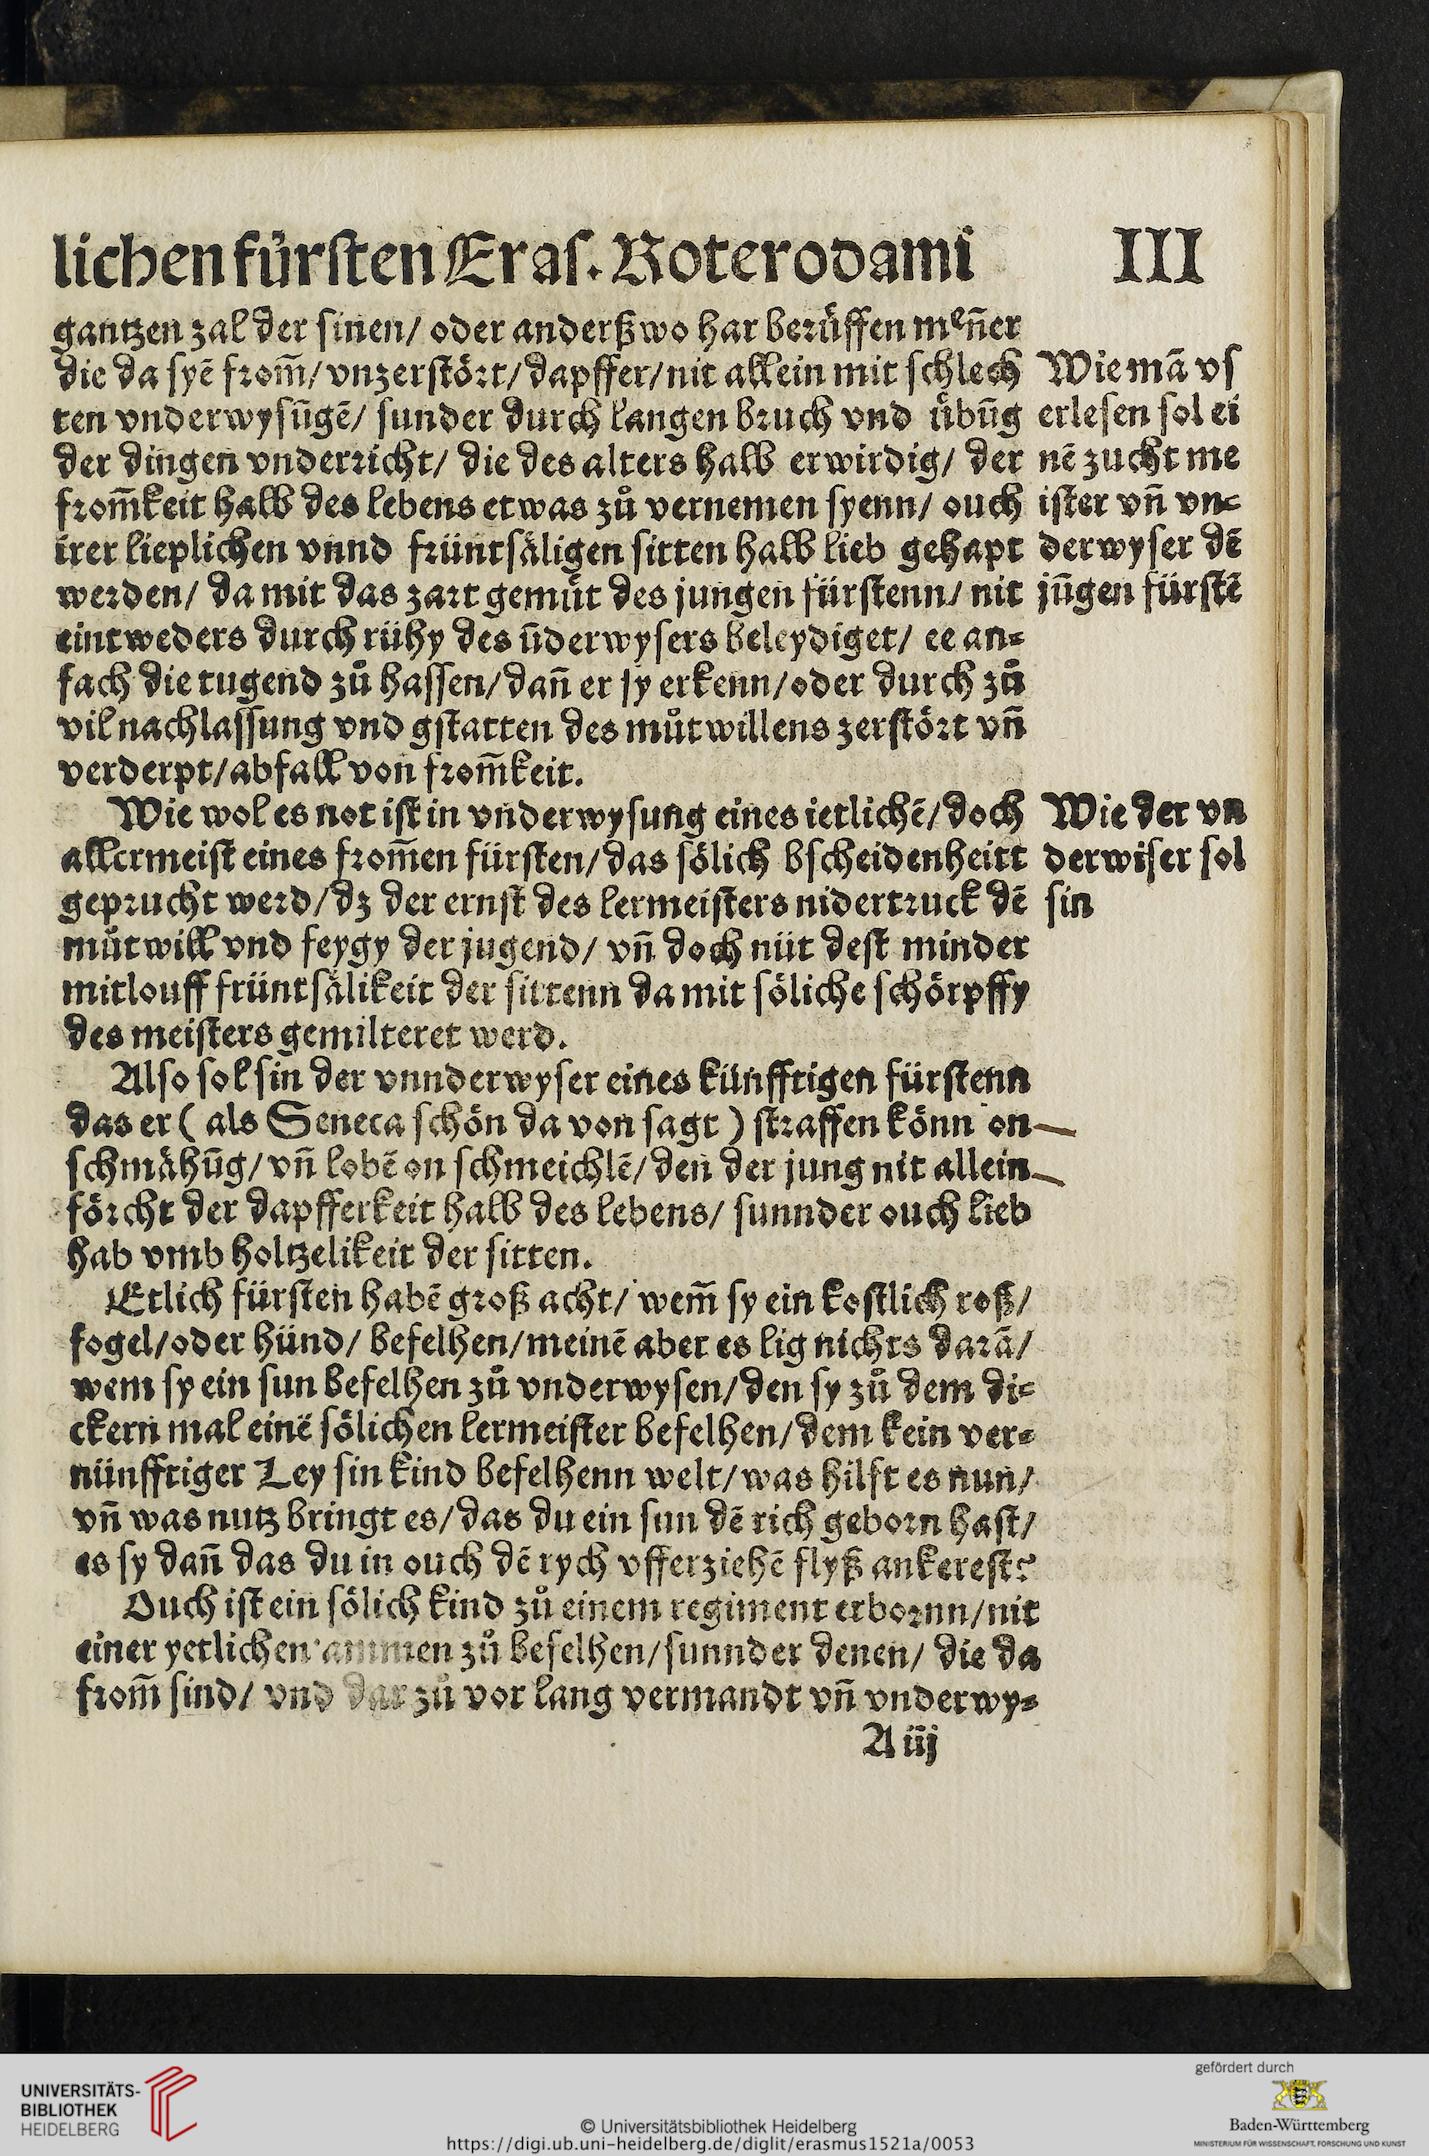 lichen fürsten Eras. Roterodami III
gantzen zal der sinen/ oder anderß wo har berüffen mͤn̄er
die da syē from̄/ vnzerstört/ dapffer/ nit allein mit schlech
ten vnderwysūgē/ sunder durch langen bruch vnd übūg
der dingen vnderricht/ die des alters halb erwirdig/ der
from̄keit halb des lebens etwas zů vernemen syenn/ ouch
irer lieplichen vnnd früntsäligen sitten halb lieb gehapt
werden/ da mit das zart gemüt des jungen fürstenn/ nit
eintweders durch rühy des ūderwysers beleydiget/ ee an⸗
fach die tugend zů hassen/ dan̄ er sy erkenn/ oder durch zů
vil nachlassung vnd gstatten des můtwillens zerstört vn̄
verderpt/ abfall von from̄keit.
Wie mā vs
erlesen sol ei
nē zucht me
ister vn̄ vn⸗
derwyser dē
jūgen fürstē
Wie wol es not ist in vnderwysung eines ietlichē/ doch
allermeist eines from̄en fürsten/ das sölich bscheidenheitt
geprucht werd/ dz der ernst des lermeisters nidertruck dē
můtwill vnd feygy der jugend/ vn̄ doch nüt dest minder
mitlouff früntsälikeit der sittenn da mit söliche schörpffy
des meisters gemilteret werd.
Wie der vn
derwiser sol
sin
Also sol sin der vnnderwyser eines künfftigen fürstenn
das er ( als Seneca schön da von sagt ) straffen könn on
schmähūg/ vn̄ lobē on schmeichlē/ den der jung nit allein
förcht der dapfferkeit halb des lebens/ sunnder ouch lieb
hab vmb holtzelikeit der sitten.
Etlich fürsten habē groß acht/ wem̄ sy ein kostlich roß/
fogel/ oder hünd/ befelhen/ meinē aber es lig nichts darā/
wem sy ein sun befelhen zů vnderwysen/ den sy zů dem di⸗
ckern mal einē sölichen lermeister befelhen/ dem kein ver⸗
nünfftiger Ley sin kind befelhenn welt/ was hilft es nun/
vn̄ was nutz bringt es/ das du ein sun dē rich geborn hast/
es sy dan̄ das du in ouch dē rych vfferziehē flyß ankerest?
Ouch ist ein sölich kind zů einem regiment erbornn/ nit
einer yetlichen ammen zů befelhen/ sunnder denen/ die da
from̄ sind/ vnd dar zů vor lang vermandt vn̄ vnderwy⸗
A iij
UNIVERSITÄTS-
BIBLIOTHEK
HEIDELBERG
© Universitätsbibliothek Heidelberg
https://digi.ub.uni-heidelberg.de/diglit/erasmus1521a/0053
gefördert durch
Baden-Württemberg
MINISTERIUM FÜR WISSENSCHAFT, FORSCHUNG UND KUNST